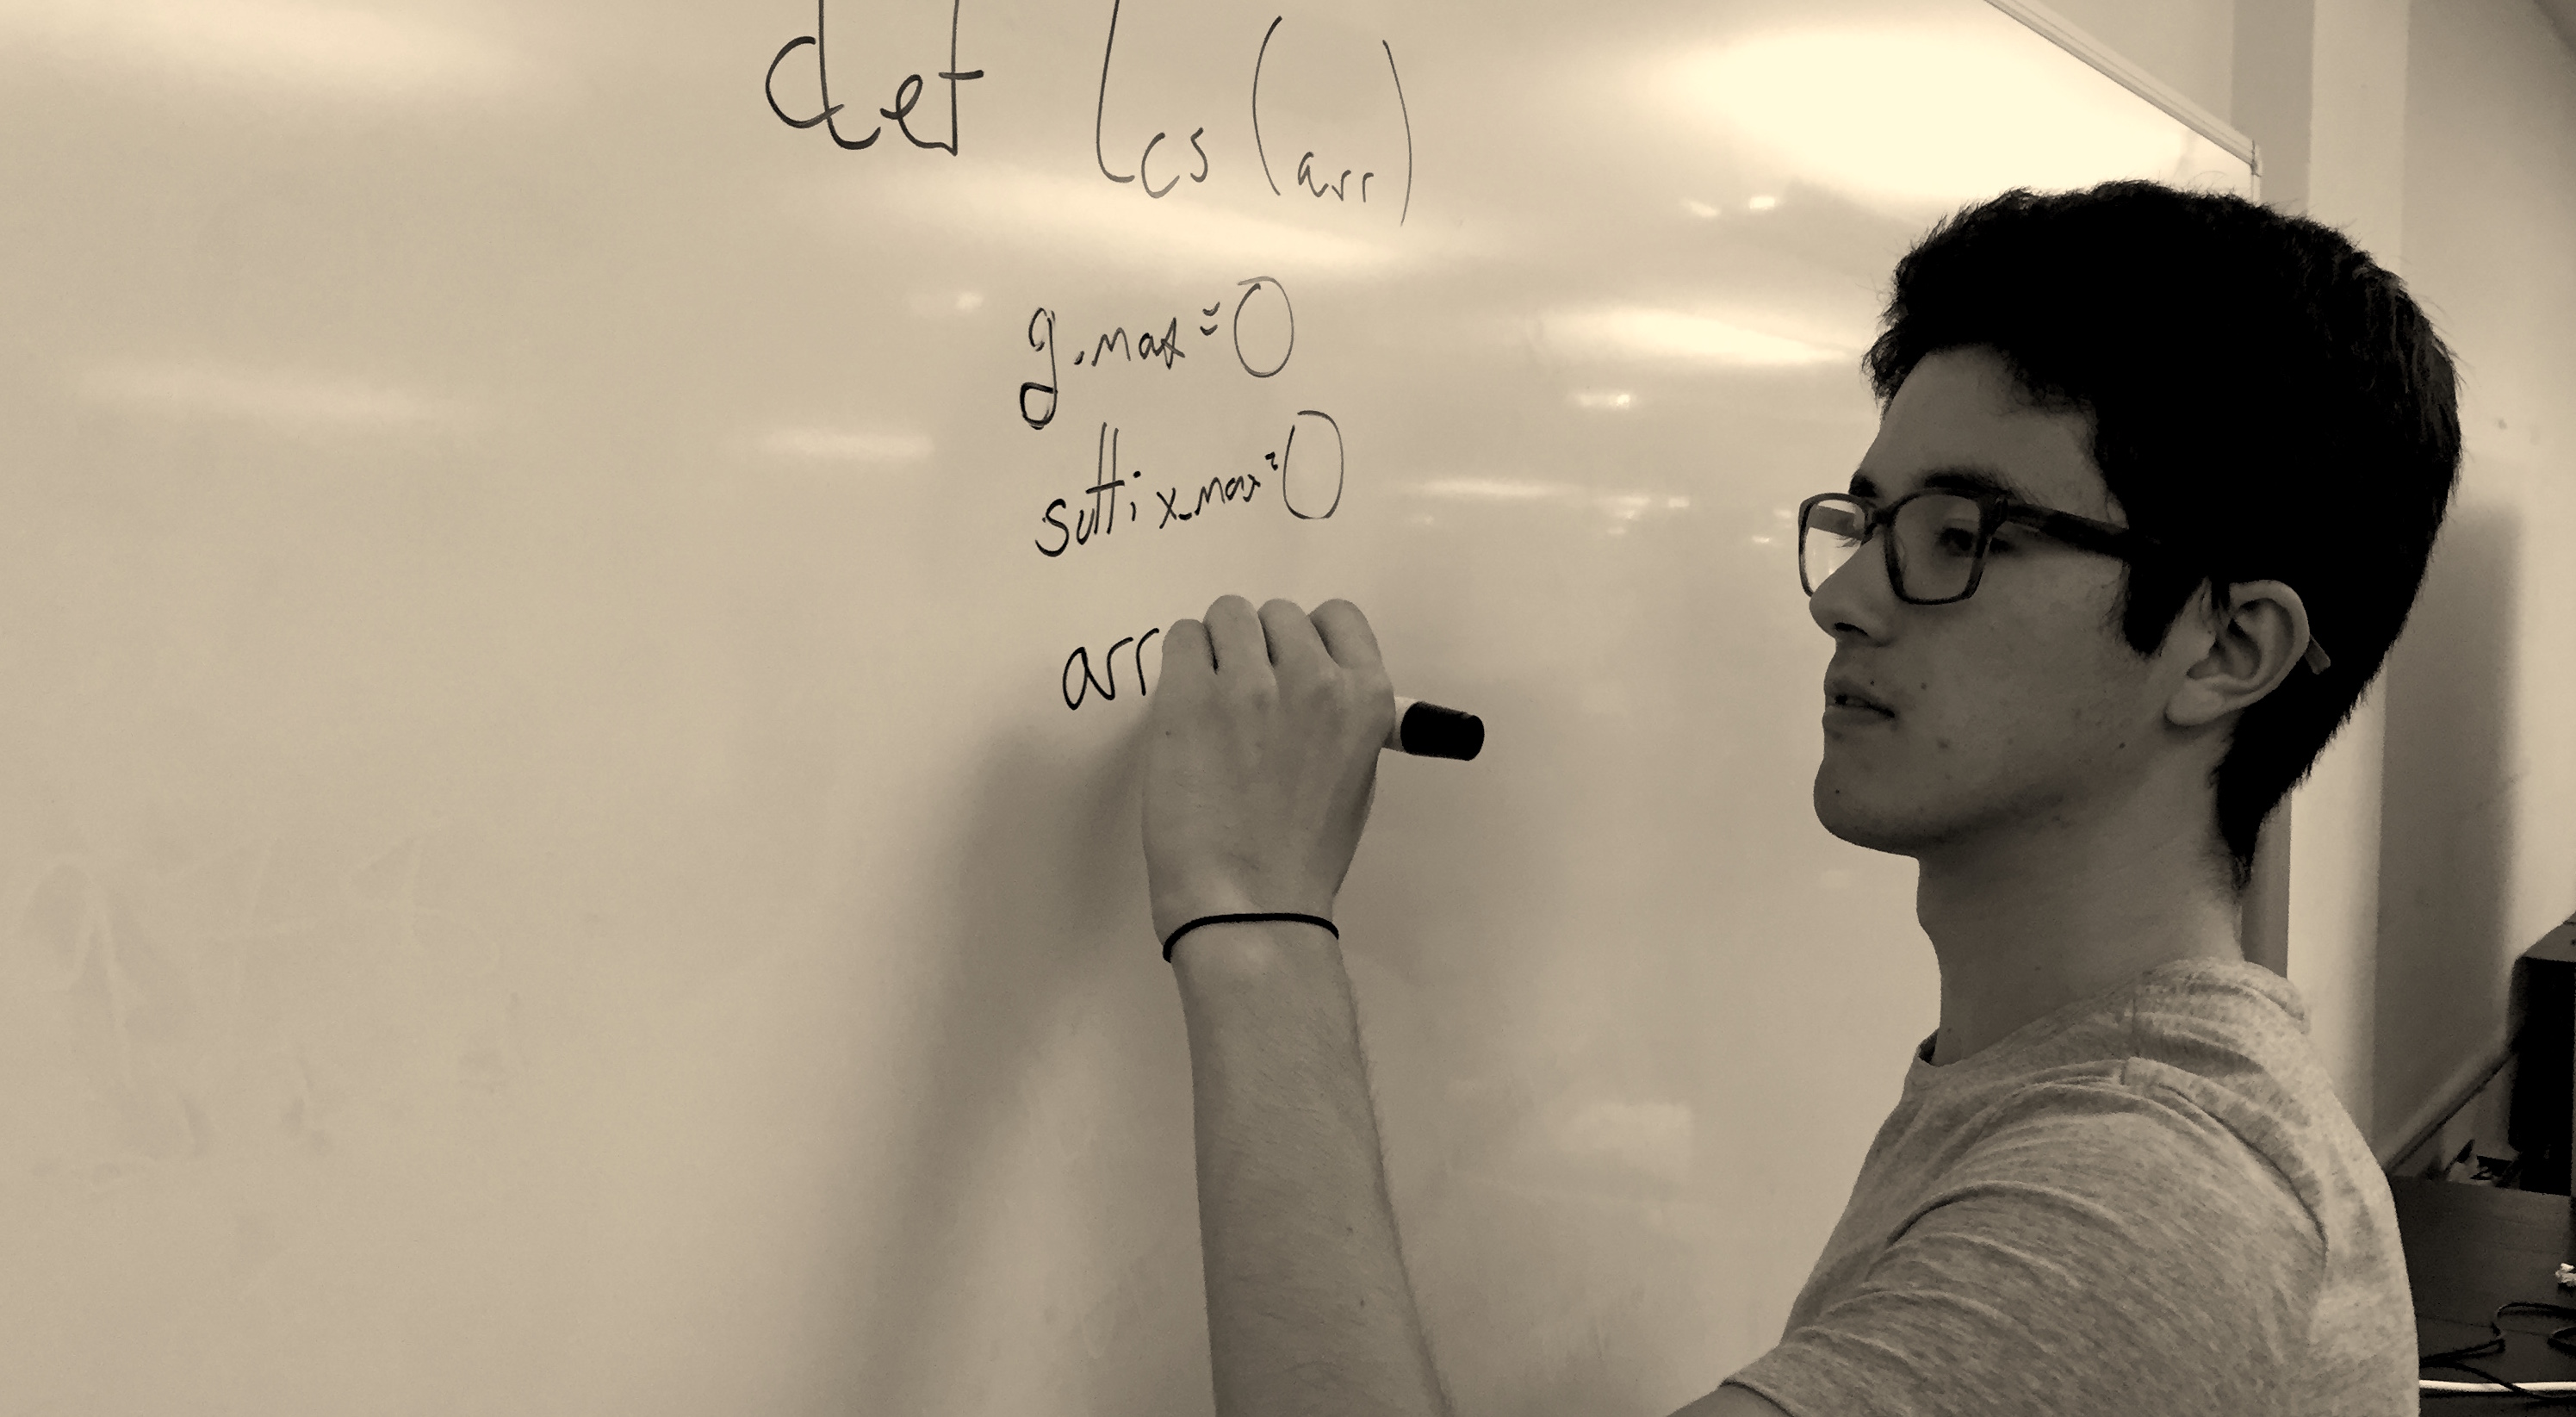 def Lcs (arr)
g.max=0
suffix_max=0
arr